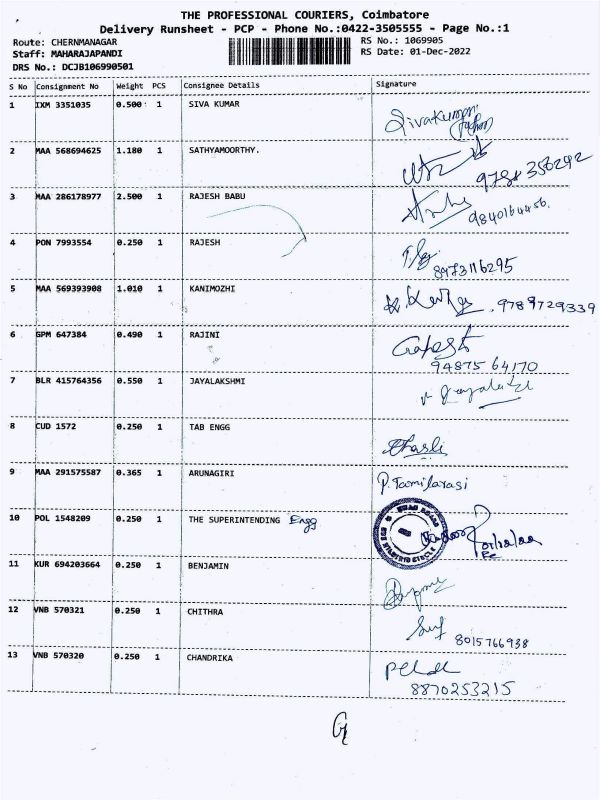 THE PROFESSIONAL COURIERS, Coimbatore
Delivery Runsheet - PCP - Phone No.:0422-3505555 - Page No.:1
Route: CHERNMANAGAR
RS No.: 1069905
Staff: MAHARAJAPANDI
RS Date: 01-Dec-2022
DRS No.: DCJB106990501
S No Consignment No Weight PCS Consignee Details Signature
1 IXM 3351035 0.500 1 SIVA KUMAR Sivakumar
2 MAA 568694625 1.180 1 SATHYAMOORTHY.
3 MAA 286178977 2.500 1 RAJESH BABU 9840164456.
4 PON 7993554 0.250 1 RAJESH
8973116295
5 MAA 569393908 1.010 1 KANIMOZHI 9789729339
6 GPM 647384 0.490 1 RAJINI Ganesh
94875 64170
7 BLR 415764356 0.550 1 JAYALAKSHMI
8 CUD 1572 0.250 1 TAB ENGG
9 MAA 291575587 0.365 1 ARUNAGIRI P. Tamilarasi
10 POL 1548209 0.250 1 THE SUPERINTENDING Engg
11 KUR 694203664 0.250 1 BENJAMIN
12 VNB 570321 0.250 1 CHITHRA
8015766938
13 VNB 570320 0.250 1 CHANDRIKA
8870253215